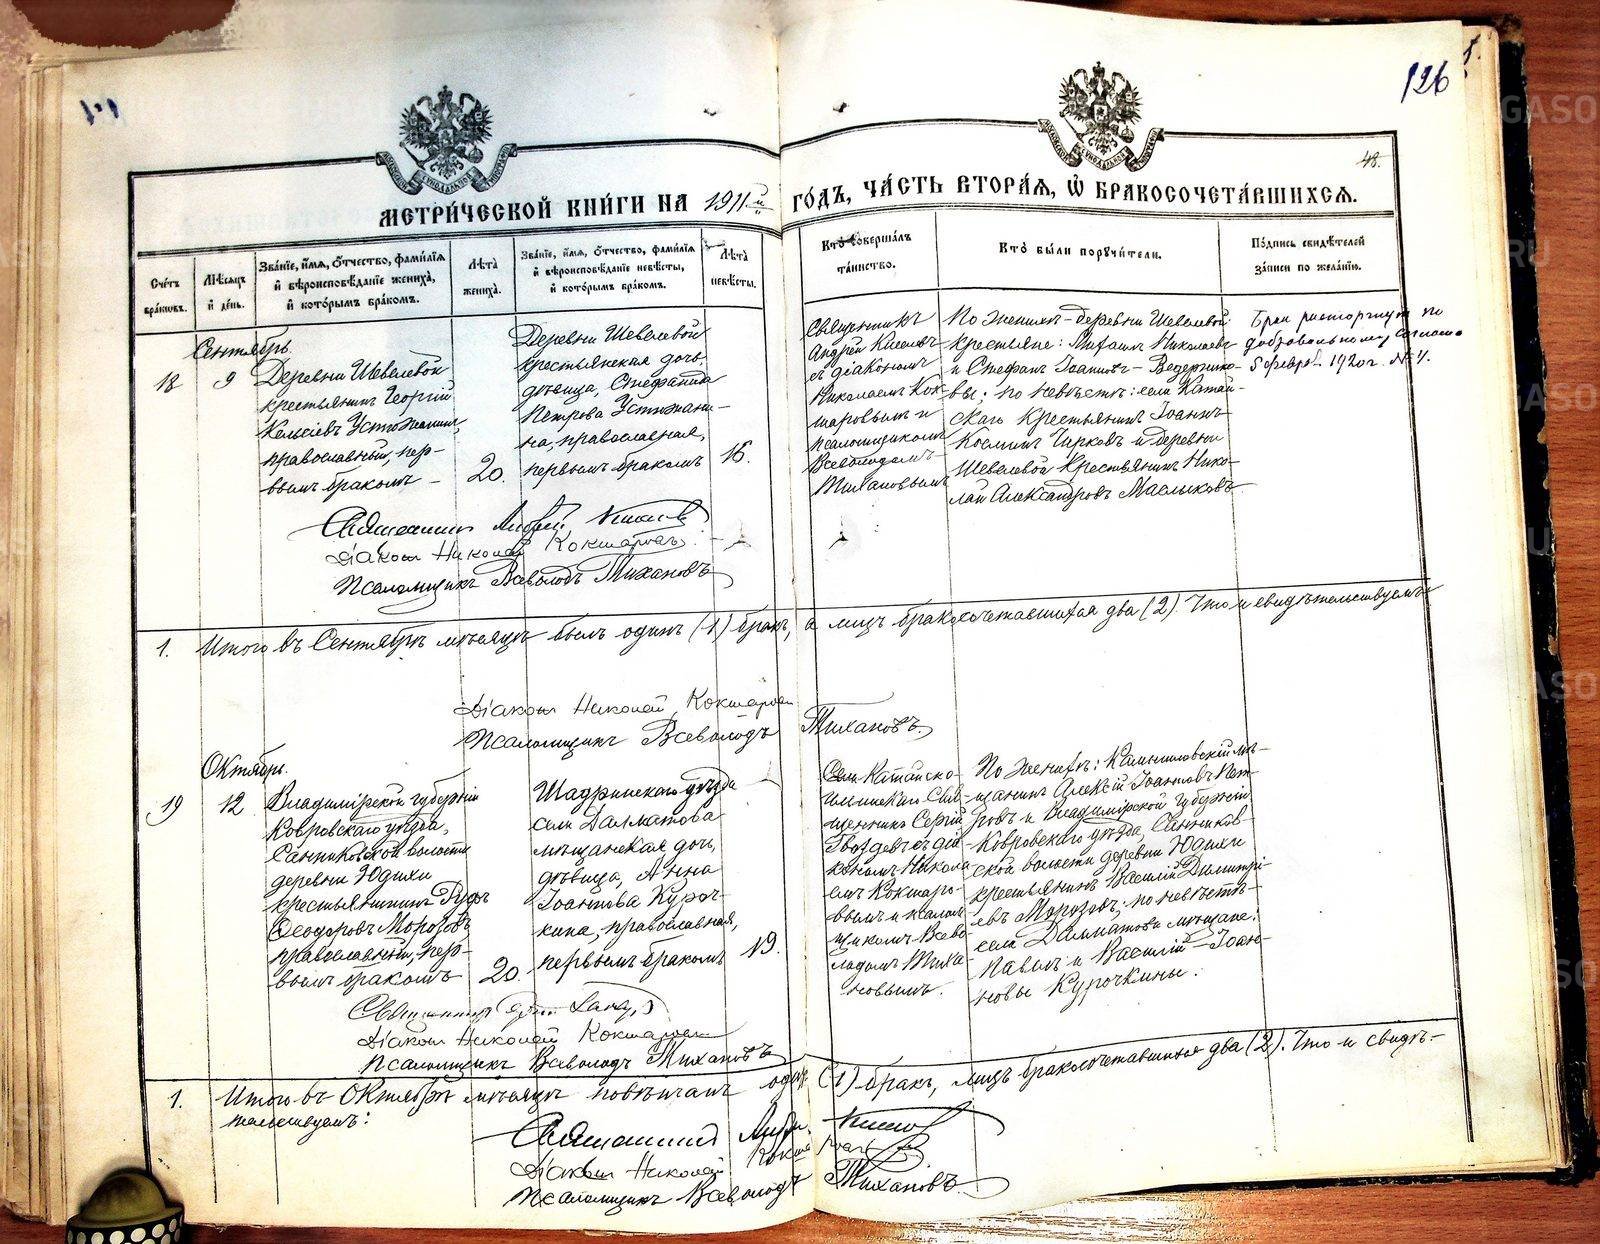 126
48.
МЕТРИ́ЧЕСКОЙ КНИ́ГИ НА 1911й ГО́ДЪ, ЧА́СТЬ ВТОРА́Я, Ѡ БРАКОСОЧЕТА́ВШИХСЯ.
Сче́тъ бра́ковъ.
Мѣ́сяцъ и́ де́нь.
Зва́нїе, и́мя, о́тчество, фами́лїя и́ вѣроисповѣ́данїе жениха̀, и́ кото́рымъ бра́комъ.
Лѣ́та жениха̀.
Зва́нїе, и́мя, о́тчество, фами́лїя и́ вѣроисповѣ́данїе невѣ́сты, и́ кото́рымъ бра́комъ.
Лѣ́та невѣ́сты.
Кто̀ соверша́лъ та́инство.
Кто̀ бы́ли поручи́тели.
По́дпись свидѣ́телей за́писи по жела́нїю.
Сентябрь.
18
9
Деревни Шевелевой
крестьянинъ Георгій
Кельсіевъ Устюжанинъ,
православный, пер-
вымъ бракомъ –
20.
Деревни Шевелевой
крестьянская дочь,
дѣвица, Стефанида
Петрова Устюжани-
на, православная,
первымъ бракомъ
16.
Священникъ
Андрей Киселевъ
съ діакономъ
Николаемъ Кок-
шаровымъ и
псаломщикомъ
Всеволодомъ
Тихановымъ
По женихѣ – деревни Шевелевой
крестьяне: Михаилъ Николаевъ
и Стефанъ Іоанновъ – Ведернико-
вы; по невѣстѣ: села Катай-
скаго крестьянинъ Іоаннъ
Косминъ Чирковъ и деревни
Шевелевой крестьянинъ Нико-
лай Александровъ Маслыковъ.
Брак расторгнут по
добровольному согласию
5 февр. 1920 г. № 4.
Священникъ Андрей Киселевъ
Діаконъ Николай Кокшаровъ.
Псаломщикъ Всеволодъ Тихановъ
1. Итого въ Сентябрѣ мѣсяцѣ былъ одинъ (1) бракъ, а лицъ бракосочетавшихся два (2). Что и свидѣтельствуемъ:
Діаконъ Николай Кокшаровъ
Псаломщикъ Всеволодъ Тихановъ.
Октябрь.
19
12
Владимірской губерніи
Ковровскаго уѣзда,
Санниковской волости
деревни Юдихи
крестьянинъ Руфъ
Ѳеодоровъ Морозовъ,
православный, пер-
вымъ бракомъ
20.
Шадринскаго уѣзда
села Далматова
мѣщанская дочь,
дѣвица, Анна
Іоаннова Куроч-
кина, православная,
первымъ бракомъ
19.
Села Катайско-
Ильинскаго Свя-
щенникъ Сергій
Гвоздевъ съ діа-
кономъ Никола-
емъ Кокшаро-
вымъ и псалом-
щикомъ Всево-
лодомъ Тиха-
новымъ.
По женихѣ: Камышловскій мѣ-
щанинъ Алексій Іоанновъ Пет-
ровъ и Владимірской губерніи
Ковровскаго уѣзда, Санников-
ской волости деревни Юдихи
крестьянинъ Василій Димитрі-
евъ Морозовъ; по невѣстѣ –
села Далматова мѣщане:
Павелъ и Василій – Іоан-
новы Курочкины.
Діаконъ Николай Кокшаровъ
Псаломщикъ Всеволодъ Тихановъ
1. Итого въ Октябрѣ мѣсяцѣ повѣнчанъ одинъ (1) бракъ, лицъ бракосочетавшихся два (2). Что и свидѣ-
тельствуемъ:
Священникъ Андрей Киселевъ
Діаконъ Николай Кокшаровъ
Псаломщикъ Всеволодъ Тихановъ.